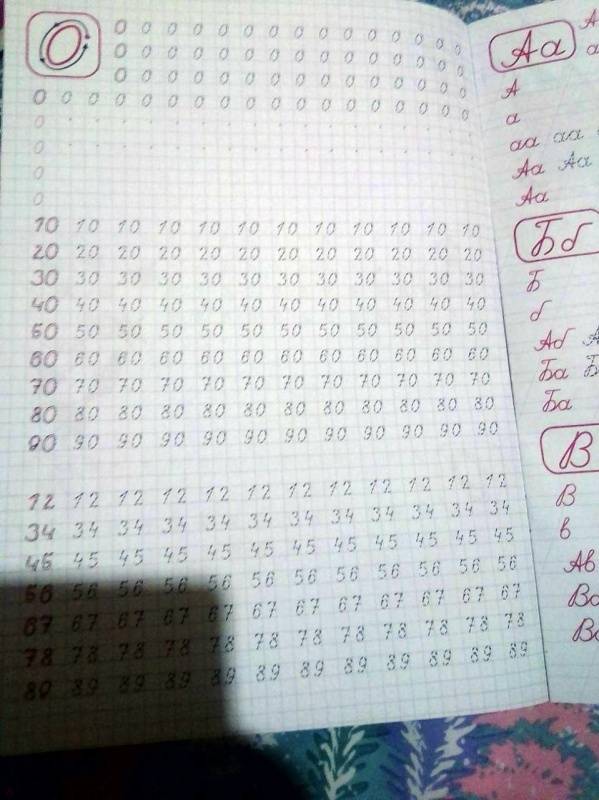 0 0 0 0 0 0 0 0 0 0 0 0 0 0 0 0
0 0 0 0 0 0 0 0 0 0 0 0 0 0 0
0 0 0 0 0 0 0 0 0 0 0 0 0 0 0
0 0 0 0 0 0 0 0 0 0 0 0 0 0 0 0 0 0
0
0
0
0
10 10 10 10 10 10 10 10 10 10 10 10
20 20 20 20 20 20 20 20 20 20 20 20
30 30 30 30 30 30 30 30 30 30 30 30
40 40 40 40 40 40 40 40 40 40 40 40
50 50 50 50 50 50 50 50 50 50 50 50
60 60 60 60 60 60 60 60 60 60 60 60
70 70 70 70 70 70 70 70 70 70 70 70
80 80 80 80 80 80 80 80 80 80 80 80
90 90 90 90 90 90 90 90 90 90 90 90
12 12 12 12 12 12 12 12 12 12 12 12
34 34 34 34 34 34 34 34 34 34 34 34
45 45 45 45 45 45 45 45 45 45 45 45
56 56 56 56 56 56 56 56 56 56 56 56
67 67 67 67 67 67 67 67 67 67 67 67
78 78 78 78 78 78 78 78 78 78 78 78
89 89 89 89 89 89 89 89 89 89 89 89
Аа А
а
А
а
аа аа
Аа Аа
Аа
Бб
Б
б
Аб
Ба
Ба
В
В
в
Ав
Ва
Ва